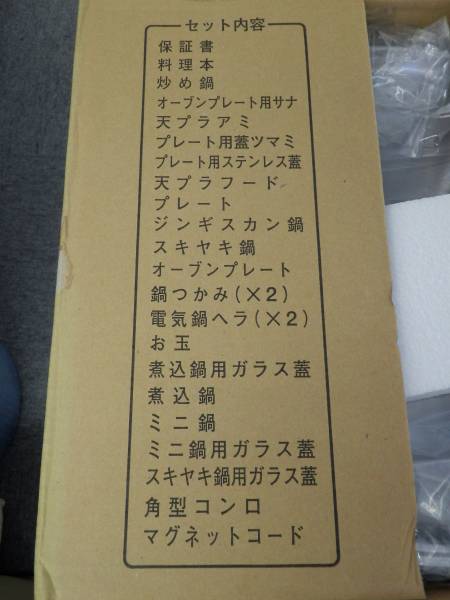 セット内容
保証書
料理本
炒め鍋
オーブンプレート用サナ
天プラアミ
プレート用蓋ツマミ
プレート用ステンレス蓋
天プラフード
プレート
ジンギスカン鍋
スキヤキ鍋
オーブンプレート
鍋つかみ(×2)
電気鍋ヘラ(×2)
お玉
煮込鍋用ガラス蓋
煮込鍋
ミニ鍋
ミニ鍋用ガラス蓋
スキヤキ鍋用ガラス蓋
角型コンロ
マグネットコード